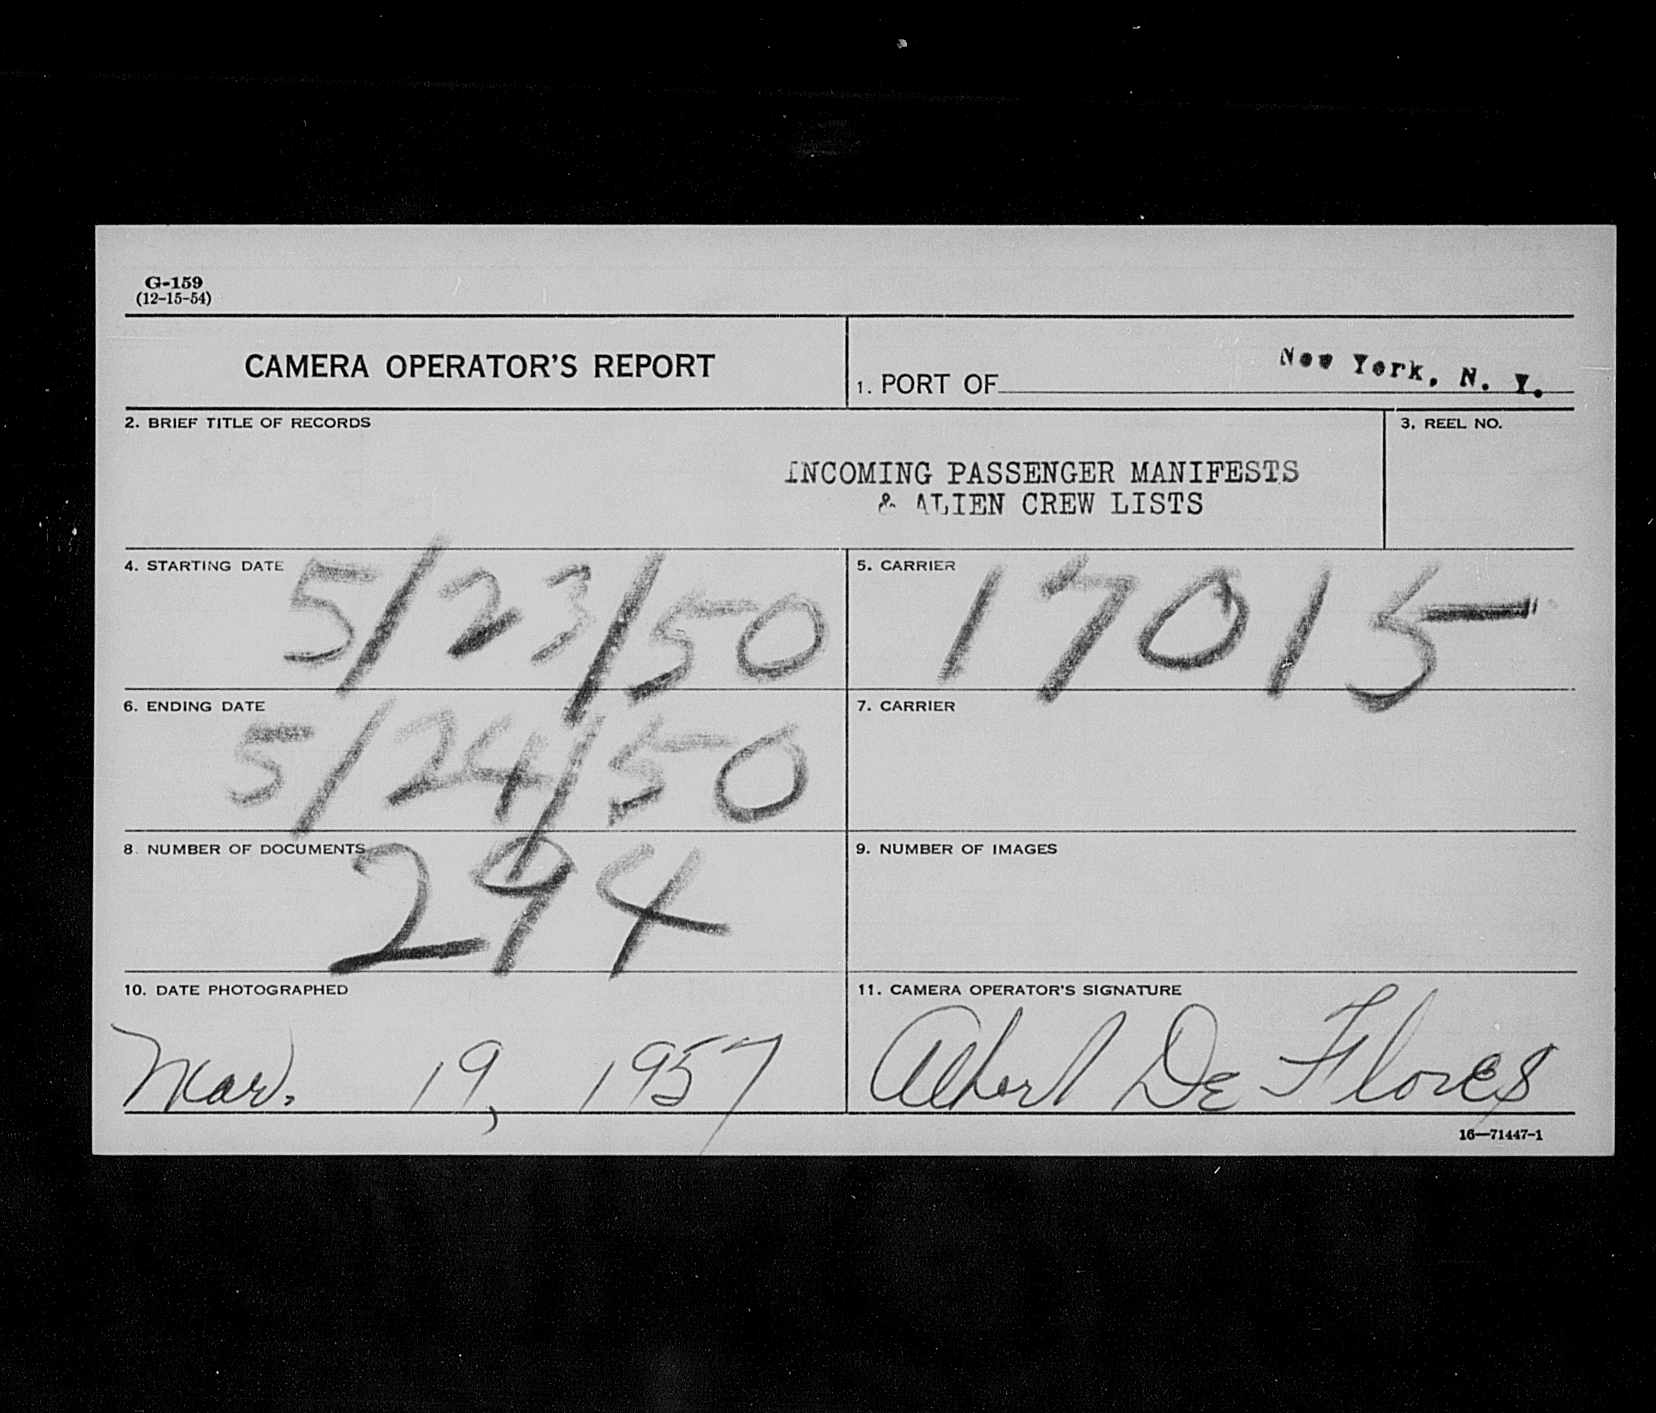 G-159
(12-15-54)
CAMERA OPERATOR'S REPORT
1. PORT OF New York, N. Y.
2. BRIEF TITLE OF RECORDS
3. REEL NO.
INCOMING PASSENGER MANIFESTS
& ALIEN CREW LISTS
4. STARTING DATE 5/23/50
5. CARRIER 17015
6. ENDING DATE 5/24/50
7. CARRIER
8. NUMBER OF DOCUMENTS 294
9. NUMBER OF IMAGES
10. DATE PHOTOGRAPHED
Mar. 19, 1957
11. CAMERA OPERATOR'S SIGNATURE
Albert De Flores
16—71447-1